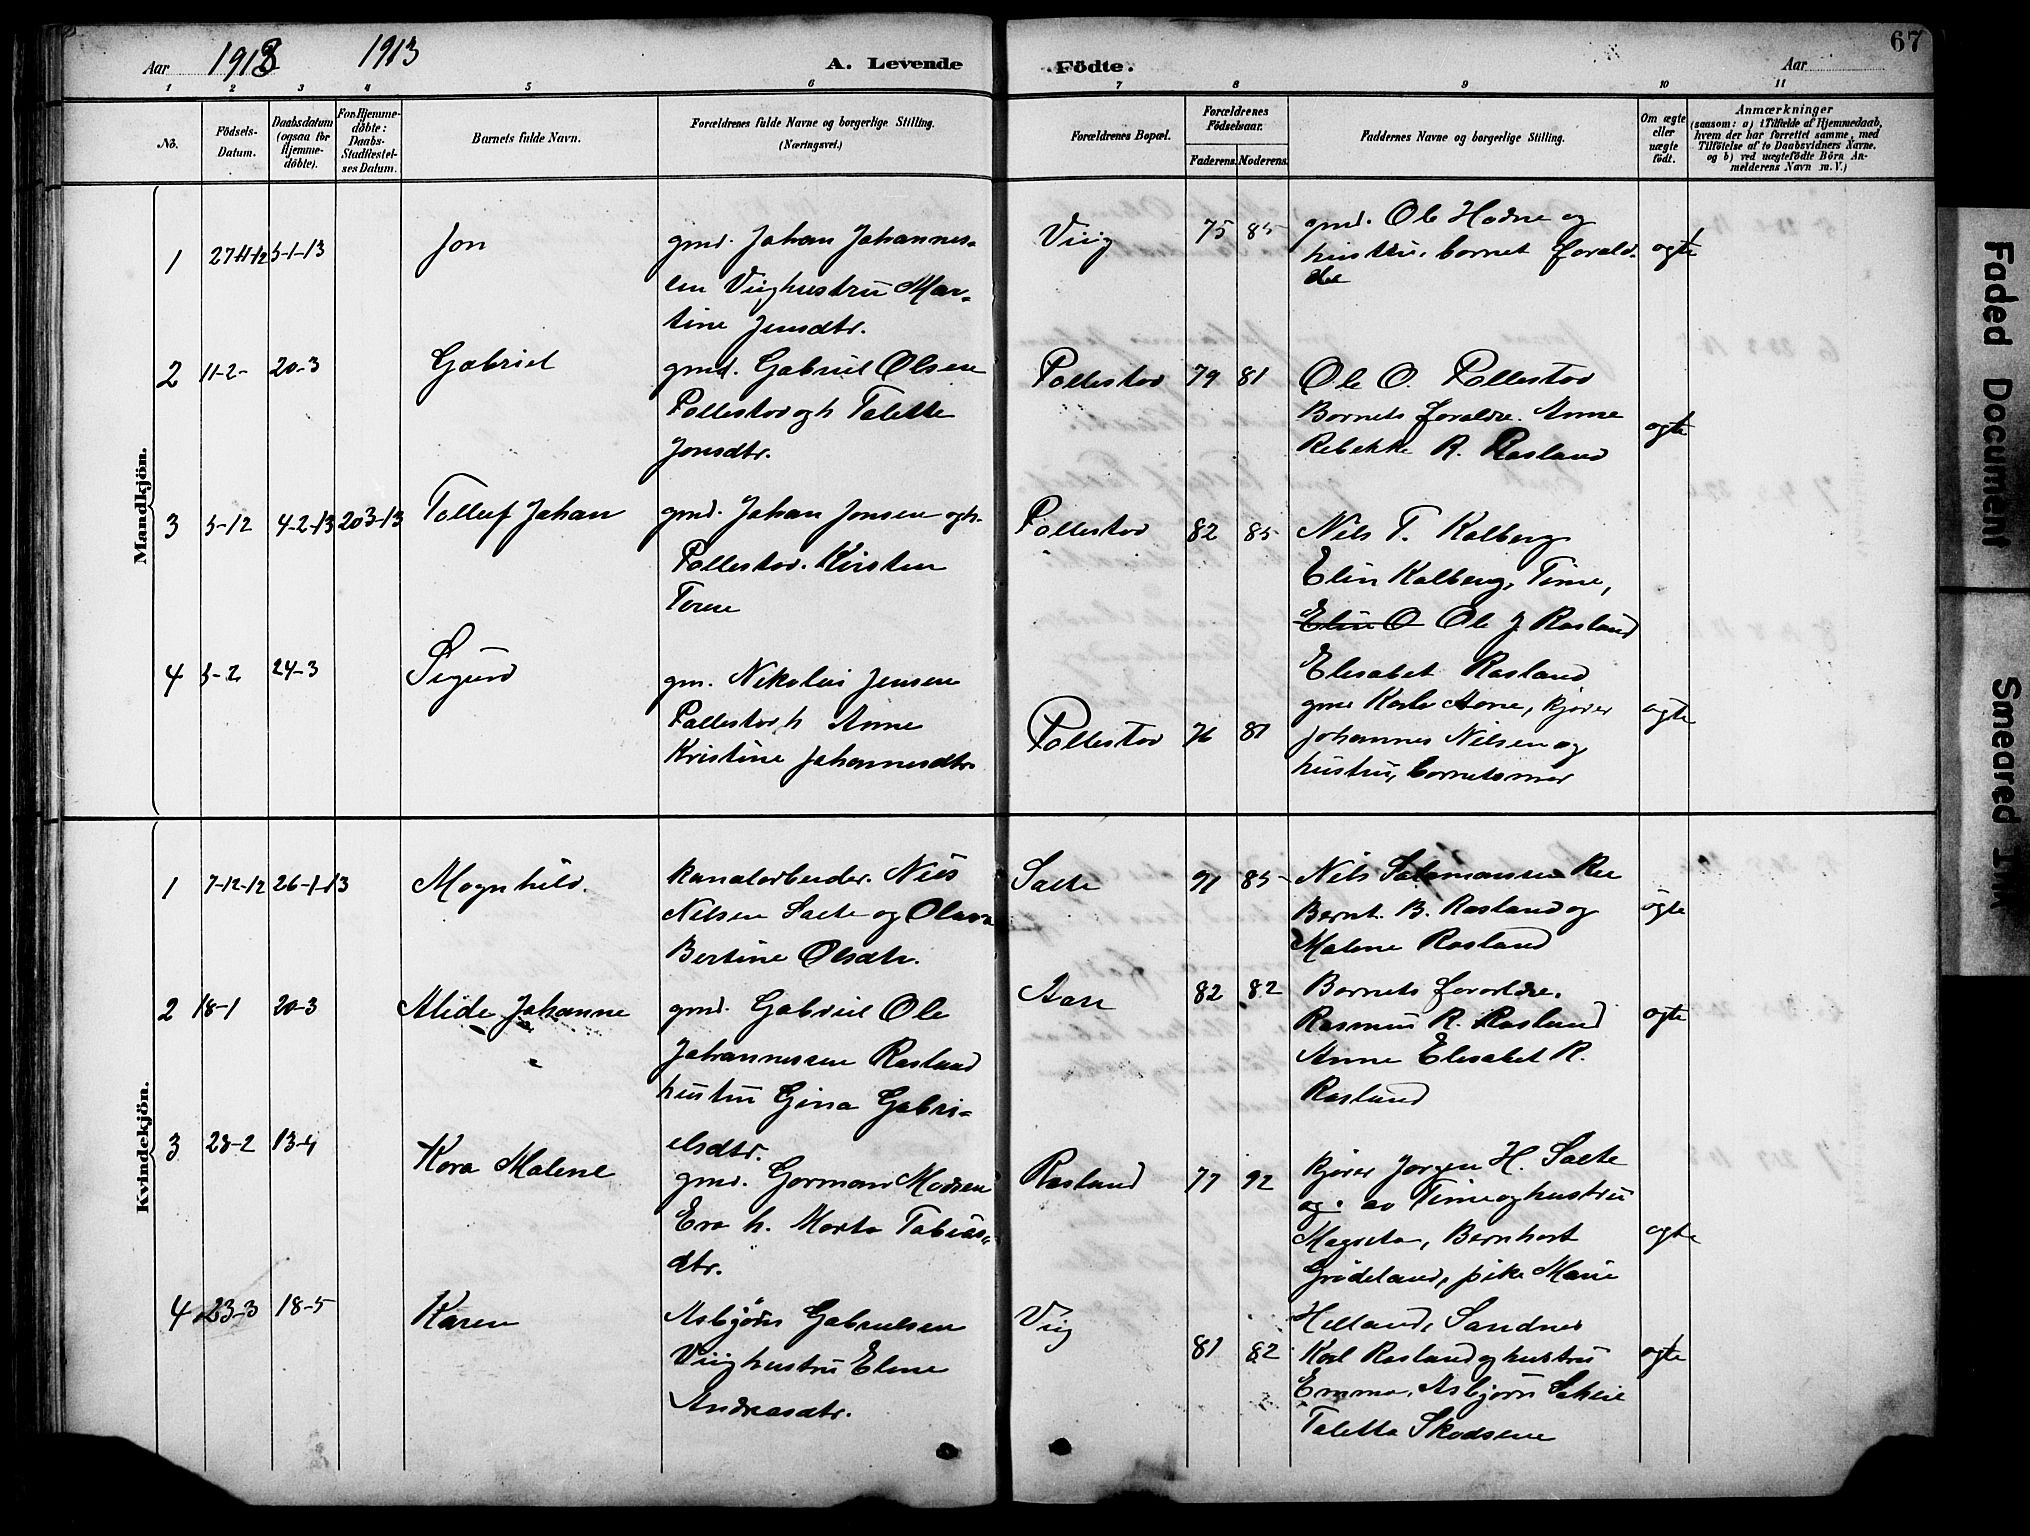 67
Aar 1913 1913 A. Levende Födte. Aar
1 2 3 4 5 6 7 8 9 10 11
No. Födsels-Datum. Daabsdatum (ogsaa for Hjemme-döbte). For Hjemme-döbte: Daabs-Stadfæstel-ses Datum. Barnets fulde Navn. Forældrenes fulde Navne og borgerlige Stilling. (Næringsvei.) Forældrenes Bopæl. Forældrenes Födselsaar. Faderens. Moderens. Faddernes Navne og borgerlige Stilling. Om ægte eller uægte födt. Anmærkninger (saasom: a) i Tilfælde af Hjemmedaab, hvem der har forrettet samme, med Tilföielse af to Daabsvidners Navne. og b) ved uægtefödte Börn An-melderens Navn m. V.)
Mandkjön.
1 27-11-12 5-1-13 Jon
gmd. Johan Johannes-
sen Viig hustru Mar-
tine Jensdtr.
Viig 75 85
gmd. Ole Hodne og
hustru, barnet foræld-
re
ægte
2 11-2- 20-3 Gabriel
gmd. Gabriel Olsen
Pollestad og h Talette
Jonsdtr.
Pollestad 79 81
Ole O. Pollestad
Barnets forældre. Anne
Rebekke R. Rosland
ægte
3 5-12 4-2-13 20-3-13 Tollef Johan
gmd. Johan Jonsen og h.
Pollestad. Kirsten
Torene
Pollestad 82 85
Nils T. Kalberg
Elin Kalberg, Time,
Elin O Ole J Rosland
Elisabet Rosland
4 5-2 24-3 Sigurd
gm. Nikolai Jensen
Pollestad h Anne
Kristine Johannesdtr.
Pollestad 76 81
gmd Karl Aane, kjører
Johannes Nilsen og
hustru, barnets mor
ægte
Kvindekjön.
1 7-12-12 26-1-13 Magnhild.
kanalarbeider. Nils
Nilsen Salte og Olava
Bertine Olsdtr.
Salte 91 85
Nils Salamonsen Ree
Bernt. B. Rosland og
Malene Rosland
ægte
2 18-1 20-3 Alide Johanne
gmd. Gabriel Ole
Johannessen Rosland
hustru Gina Gabri-
elsdtr.
Aase 82 82
Barnets forældre.
Rasmus R. Rosland
Anne Elisabet R.
Rosland
ægte
3 28-2 13-4 Kora Malene
gmd. Gorman Madsen
Era h. Marta Tobias-
dtr.
Rosland 77 92
kjører Jørgen H. Salte
og. av Time og hustru
Magreta, Bernhart
Grødeland, pike Marie
Helland, Sandnes
ægte
4 23-3 18-5 Karen
Asbjørn Gabrielsen
Viig hustru Elene
Andreasdtr.
Viig 81 82
Karl Rosland og hustru
Emma, Asbjørn Skeie
Taletta Skadsem
ægte
Faded Document
Smeared Ink